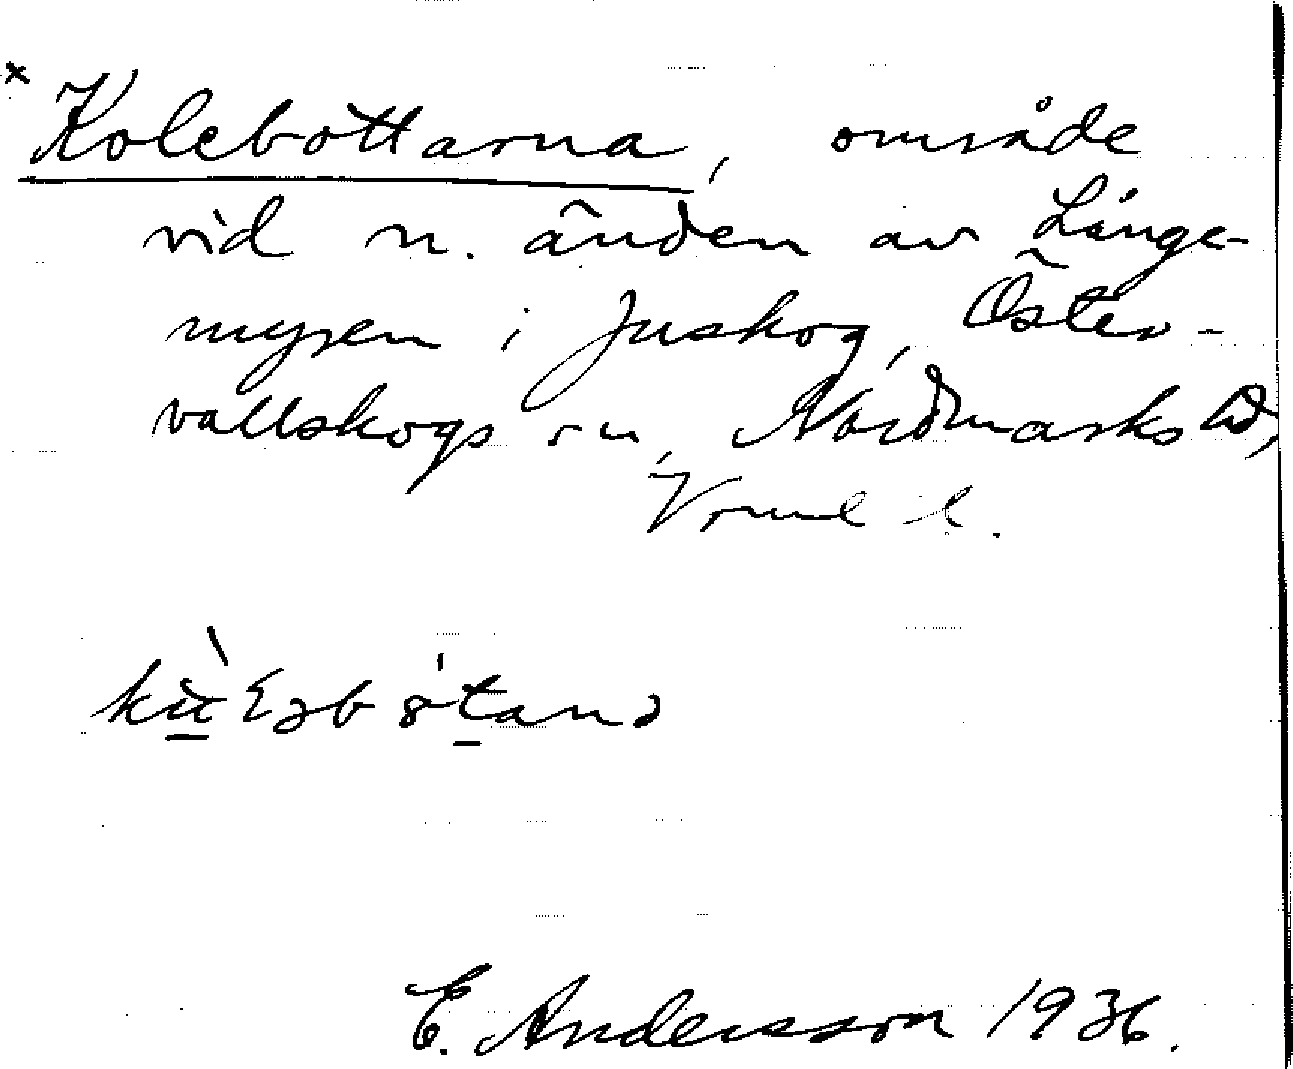 × Kolebottarna, område
vid n. änden av Långe-
myren i Juskog, Öster-
vallskogs sn, Nordmarks hd,
Vrml l.
E. Andersson 1936.